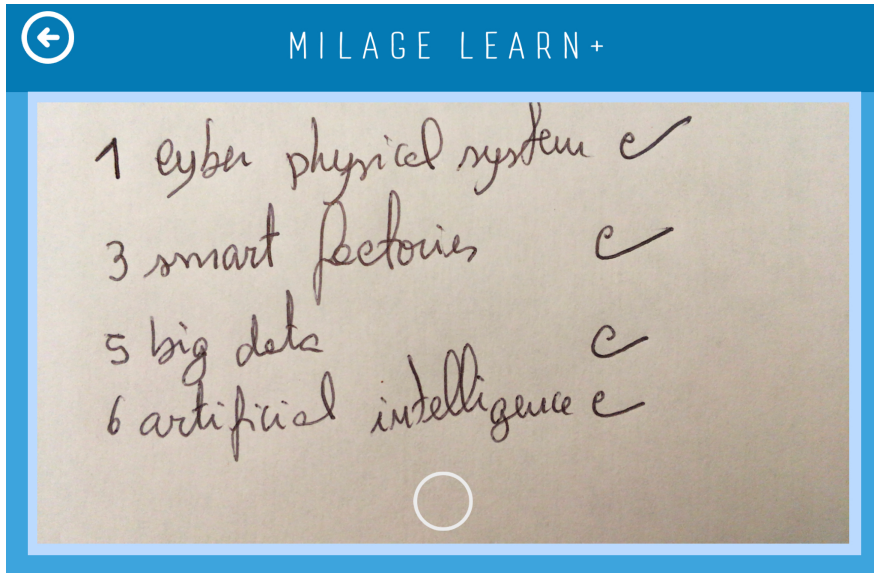 MILAGE LEARN+
1 cyber physical system c
3 smart factories c
5 big data c
6 artificial intelligence c